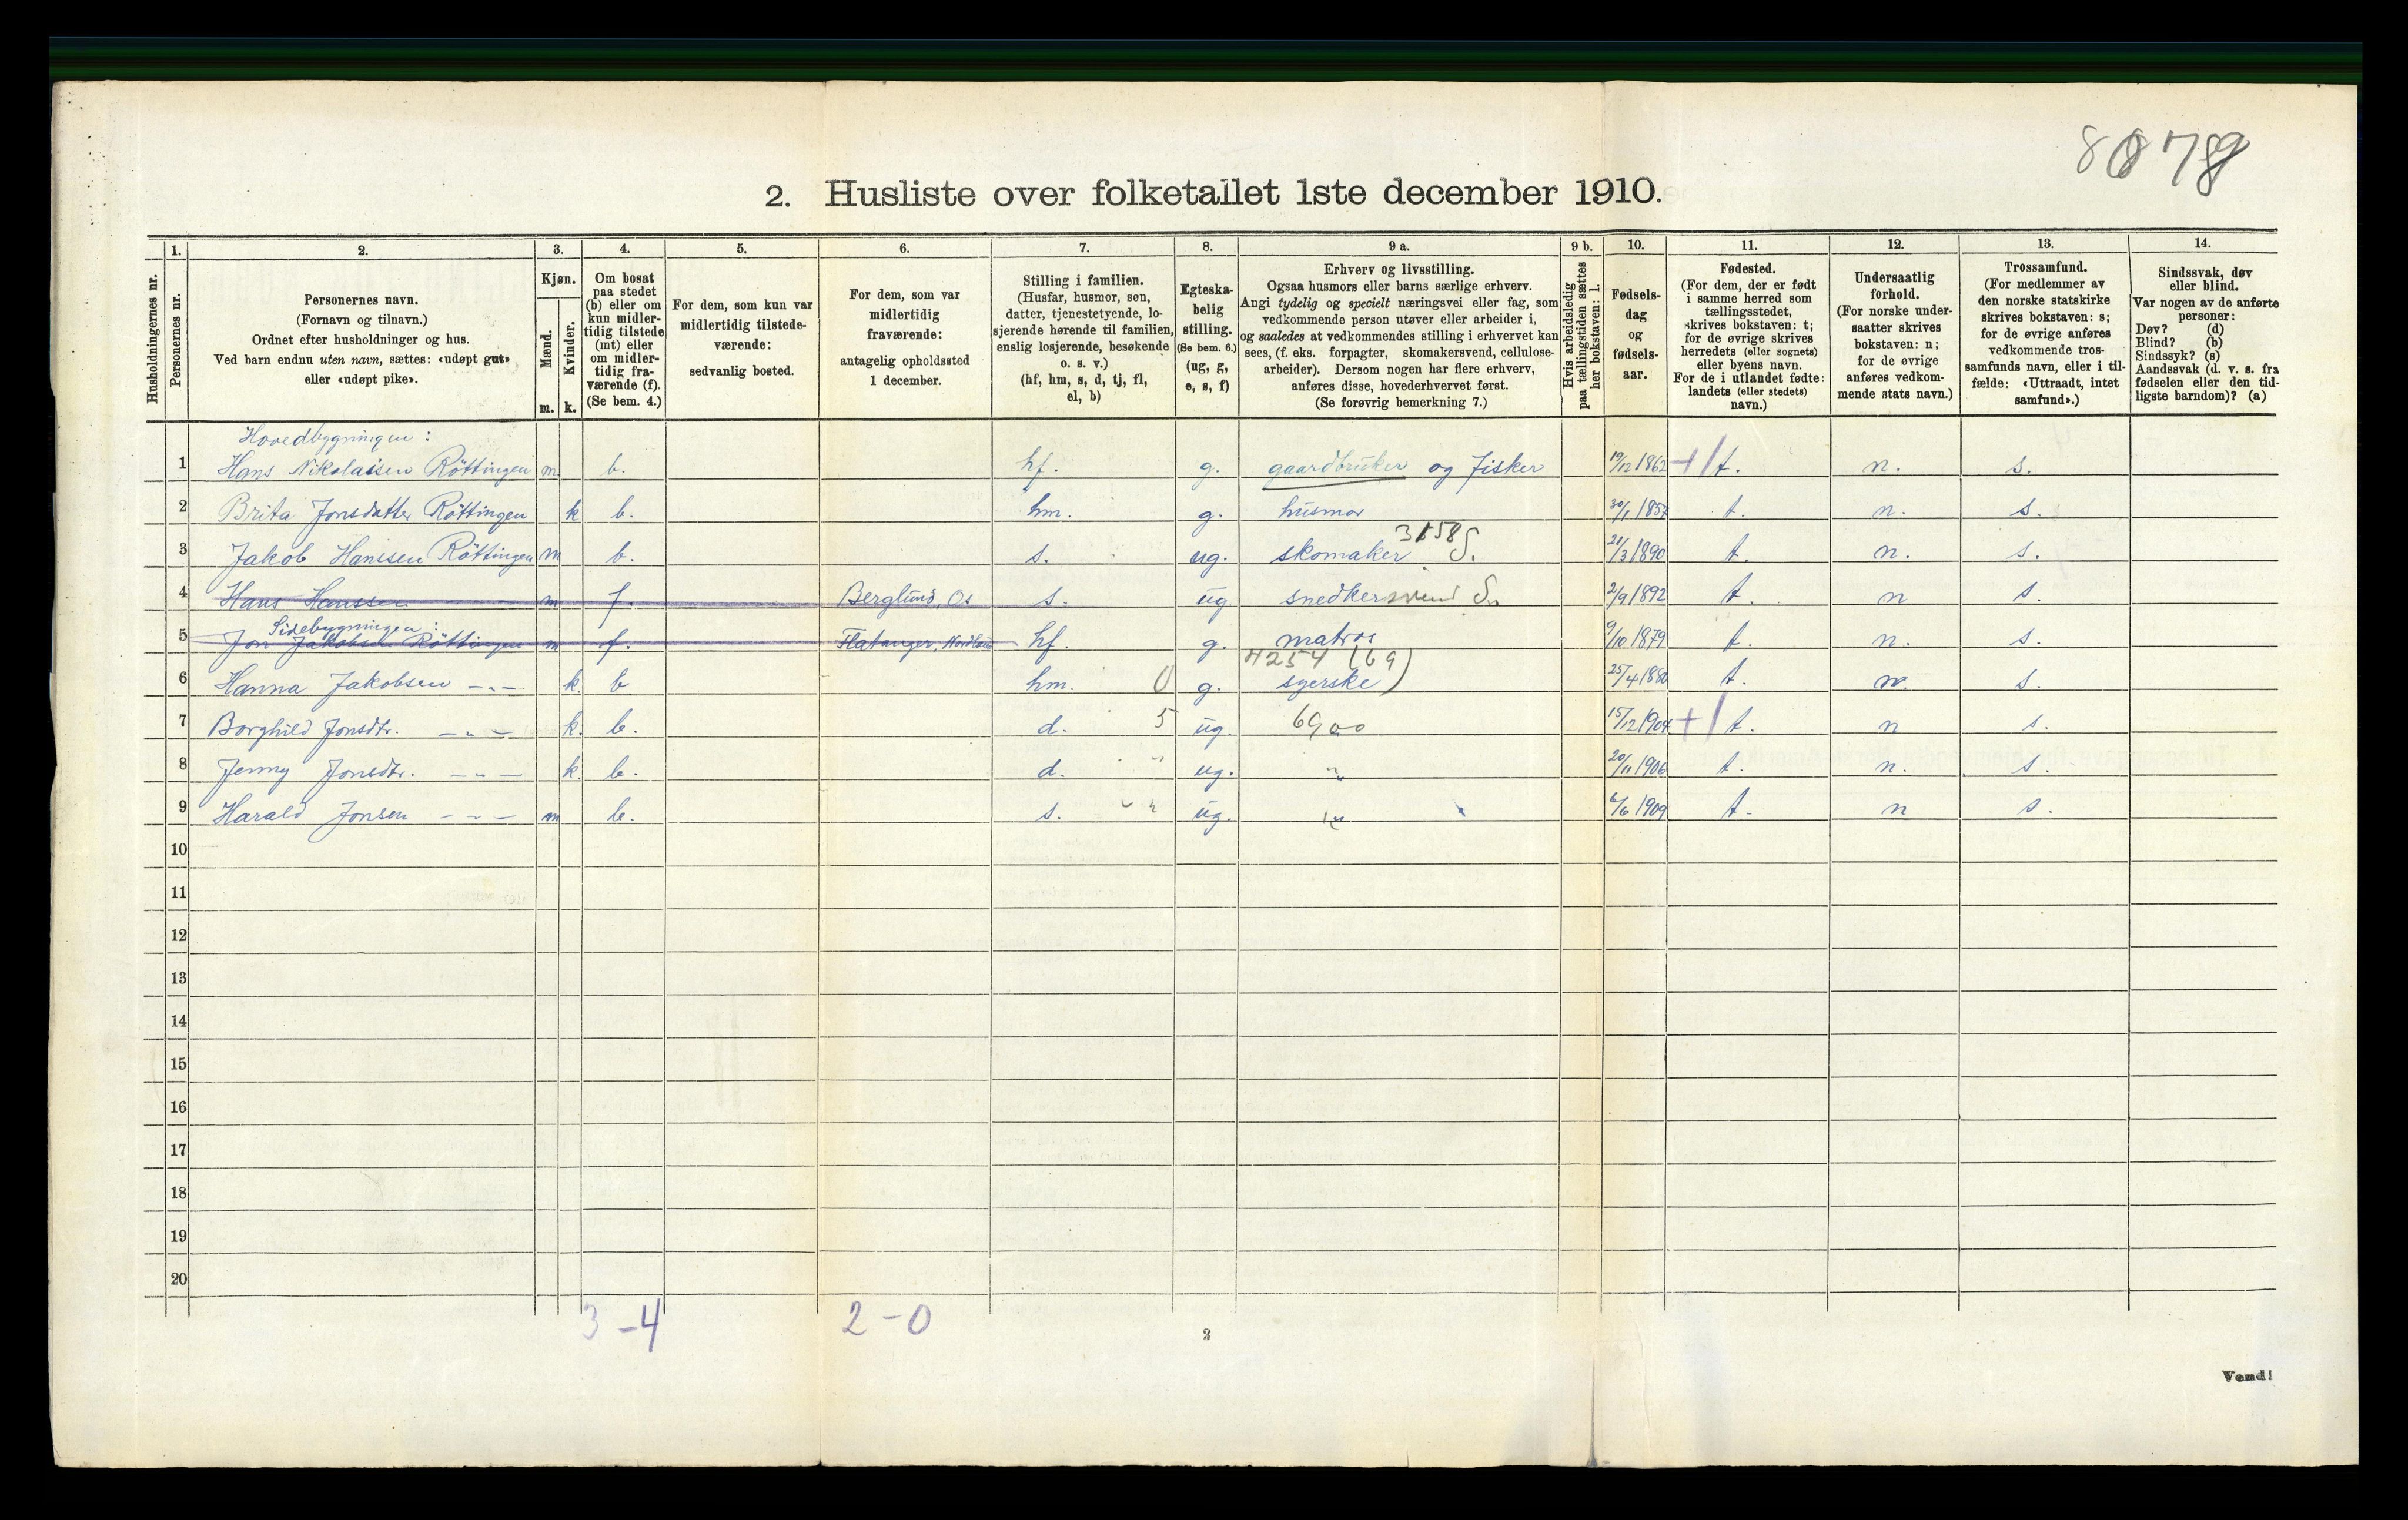 8878
2. Husliste over folketallet 1ste december 1910.
Husholdningernes nr.
1. Personernes nr.
2. Personernes navn.
(Fornavn og tilnavn.)
Ordnet efter husholdninger og hus.
Ved barn endnu uten navn, sættes: «udøpt gut»
eller «udøpt pike».
3. Kjøn.
Mænd. m.
Kvinder. k.
4. Om bosat
paa stedet
(b) eller om
kun midler-
tidig tilstede
(mt) eller
om midler-
tidig fra-
værende (f).
(Se bem. 4.)
5. For dem, som kun var
midlertidig tilstede-
værende:
sedvanlig bosted.
6. For dem, som var
midlertidig
fraværende:
antagelig opholdssted
1 december.
7. Stilling i familien.
(Husfar, husmor, søn,
datter, tjenestetyende, lo-
sjerende hørende til familien,
enslig losjerende, besøkende
o. s. v.)
(hf, hm, s, d, tj, fl,
el, b)
8. Egteska-
belig
stilling.
(Se bem. 6.)
(ug, g,
e, s, f)
9 a. Erhverv og livsstilling.
Ogsaa husmors eller barns særlige erhverv.
Angi tydelig og specielt næringsvei eller fag, som
vedkommende person utøver eller arbeider i,
og saaledes at vedkommendes stilling i erhvervet kan
sees, (f. eks. forpagter, skomakersvend, cellulose-
arbeider). Dersom nogen har flere erhverv,
anføres disse, hovederhvervet først.
(Se forøvrig bemerkning 7.)
9 b. Hvis arbeidsledig
paa tællingstiden sættes
her bokstaven: l.
10. Fødsels-
dag
og
fødsels-
aar.
11. Fødested.
(For dem, der er født
i samme herred som
tællingsstedet,
skrives bokstaven: t;
for de øvrige skrives
herredets (eller sognets)
eller byens navn.
For de i utlandet fødte:
landets (eller stedets)
navn.)
12. Undersaatlig
forhold.
(For norske under-
saatter skrives
bokstaven: n;
for de øvrige
anføres vedkom-
mende stats navn.)
13. Trossamfund.
(For medlemmer av
den norske statskirke
skrives bokstaven: s;
for de øvrige anføres
vedkommende tros-
samfunds navn, eller i til-
fælde: «Uttraadt, intet
samfund».)
14. Sindssvak, døv
eller blind.
Var nogen av de anførte
personer:
Døv? (d)
Blind? (b)
Sindssyk? (s)
Aandssvak (d. v. s. fra
fødselen eller den tid-
ligste barndom)? (a)
Hovedbygningen:
1 Hans Nikolaisen Röttingen m. b. hf. g. gaardbruker og fisker 19/12 1862 t. n. s.
2 Brita Jonsdatter Röttingen k b. hm. g. husmor 30/1 1857 t. n. s.
3 Jakob Hanssen Röttingen m b. s. ug. skomaker 3158 S. 21/3 1890 t. n. s.
4 Hans Hanssen m f. Berglund, Os s. ug. snedkersvend S. 2/9 1892 t. n s.
Sidebygningen:
5 Jon Jakobsen Röttingen m f. Flatanger, Nordland hf. g. matros 9/10 1879 t. n. s.
4254 (69)
6 Hanna Jakobsen -"- k. b hm. 0 g. syerske 25/4 1880 t. n. s.
7 Borghild Jonsdtr. -"- k. b. d. 5 ug. 6900 15/12 1904 t. n s.
8 Jenny Jonsdtr. -"- k b. d. " ug. " 20/11 1906 t. n. s.
9 Harald Jonsen -"- m b. s. " ug. " 6/6 1909 t. n s.
10
11
12
13
14
15
16
17
18
19
20
3-4 2-0
2
Vend!